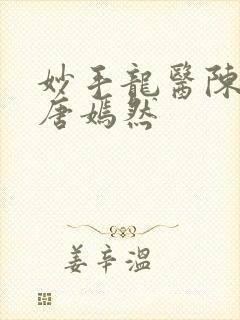 妙手龍醫陳
唐嫣然
姜辛溫